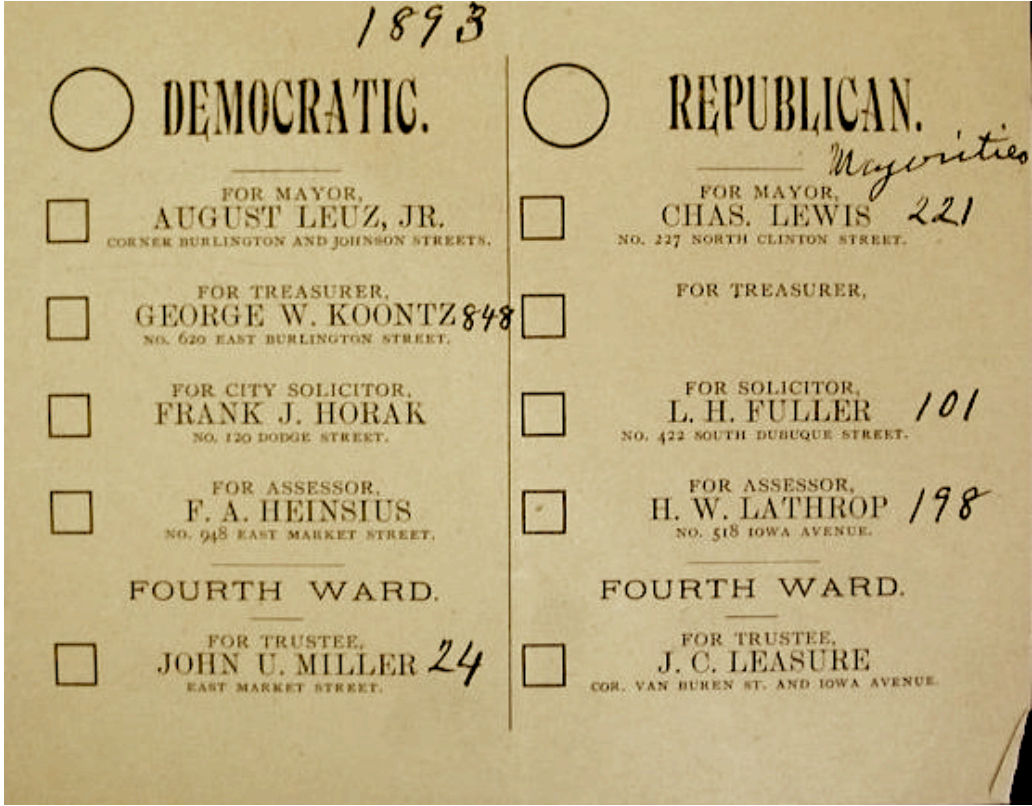 1893
DEMOCRATIC.
FOR MAYOR,
AUGUST LEUZ, JR.
CORNER BURLINGTON AND JOHNSON STREETS.
FOR TREASURER,
GEORGE W. KOONTZ 848
NO. 620 EAST BURLINGTON STREET.
FOR CITY SOLICITOR,
FRANK J. HORAK
NO. 120 DODGE STREET.
FOR ASSESSOR,
F. A. HEINSIUS
NO. 948 EAST MARKET STREET.
FOURTH WARD.
FOR TRUSTEE,
JOHN U. MILLER 24
EAST MARKET STREET.
REPUBLICAN.
Majorities
FOR MAYOR,
CHAS. LEWIS 221
NO. 227 NORTH CLINTON STREET.
FOR TREASURER,
FOR SOLICITOR,
L. H. FULLER 101
NO. 422 SOUTH DUBUQUE STREET.
FOR ASSESSOR,
H. W. LATHROP 198
NO. 518 IOWA AVENUE.
FOURTH WARD.
FOR TRUSTEE,
J. C. LEASURE
COR. VAN BUREN ST. AND IOWA AVENUE.